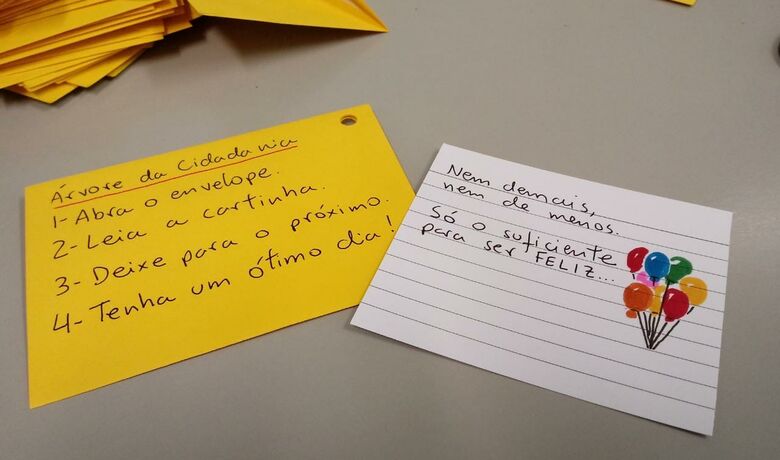 Árvore da Cidadania
1- Abra o envelope.
2- Leia a cartinha.
3- Deixe para o próximo.
4- Tenha um ótimo dia!
Nem demais,
nem de menos.
Só o suficiente
para ser FELIZ...